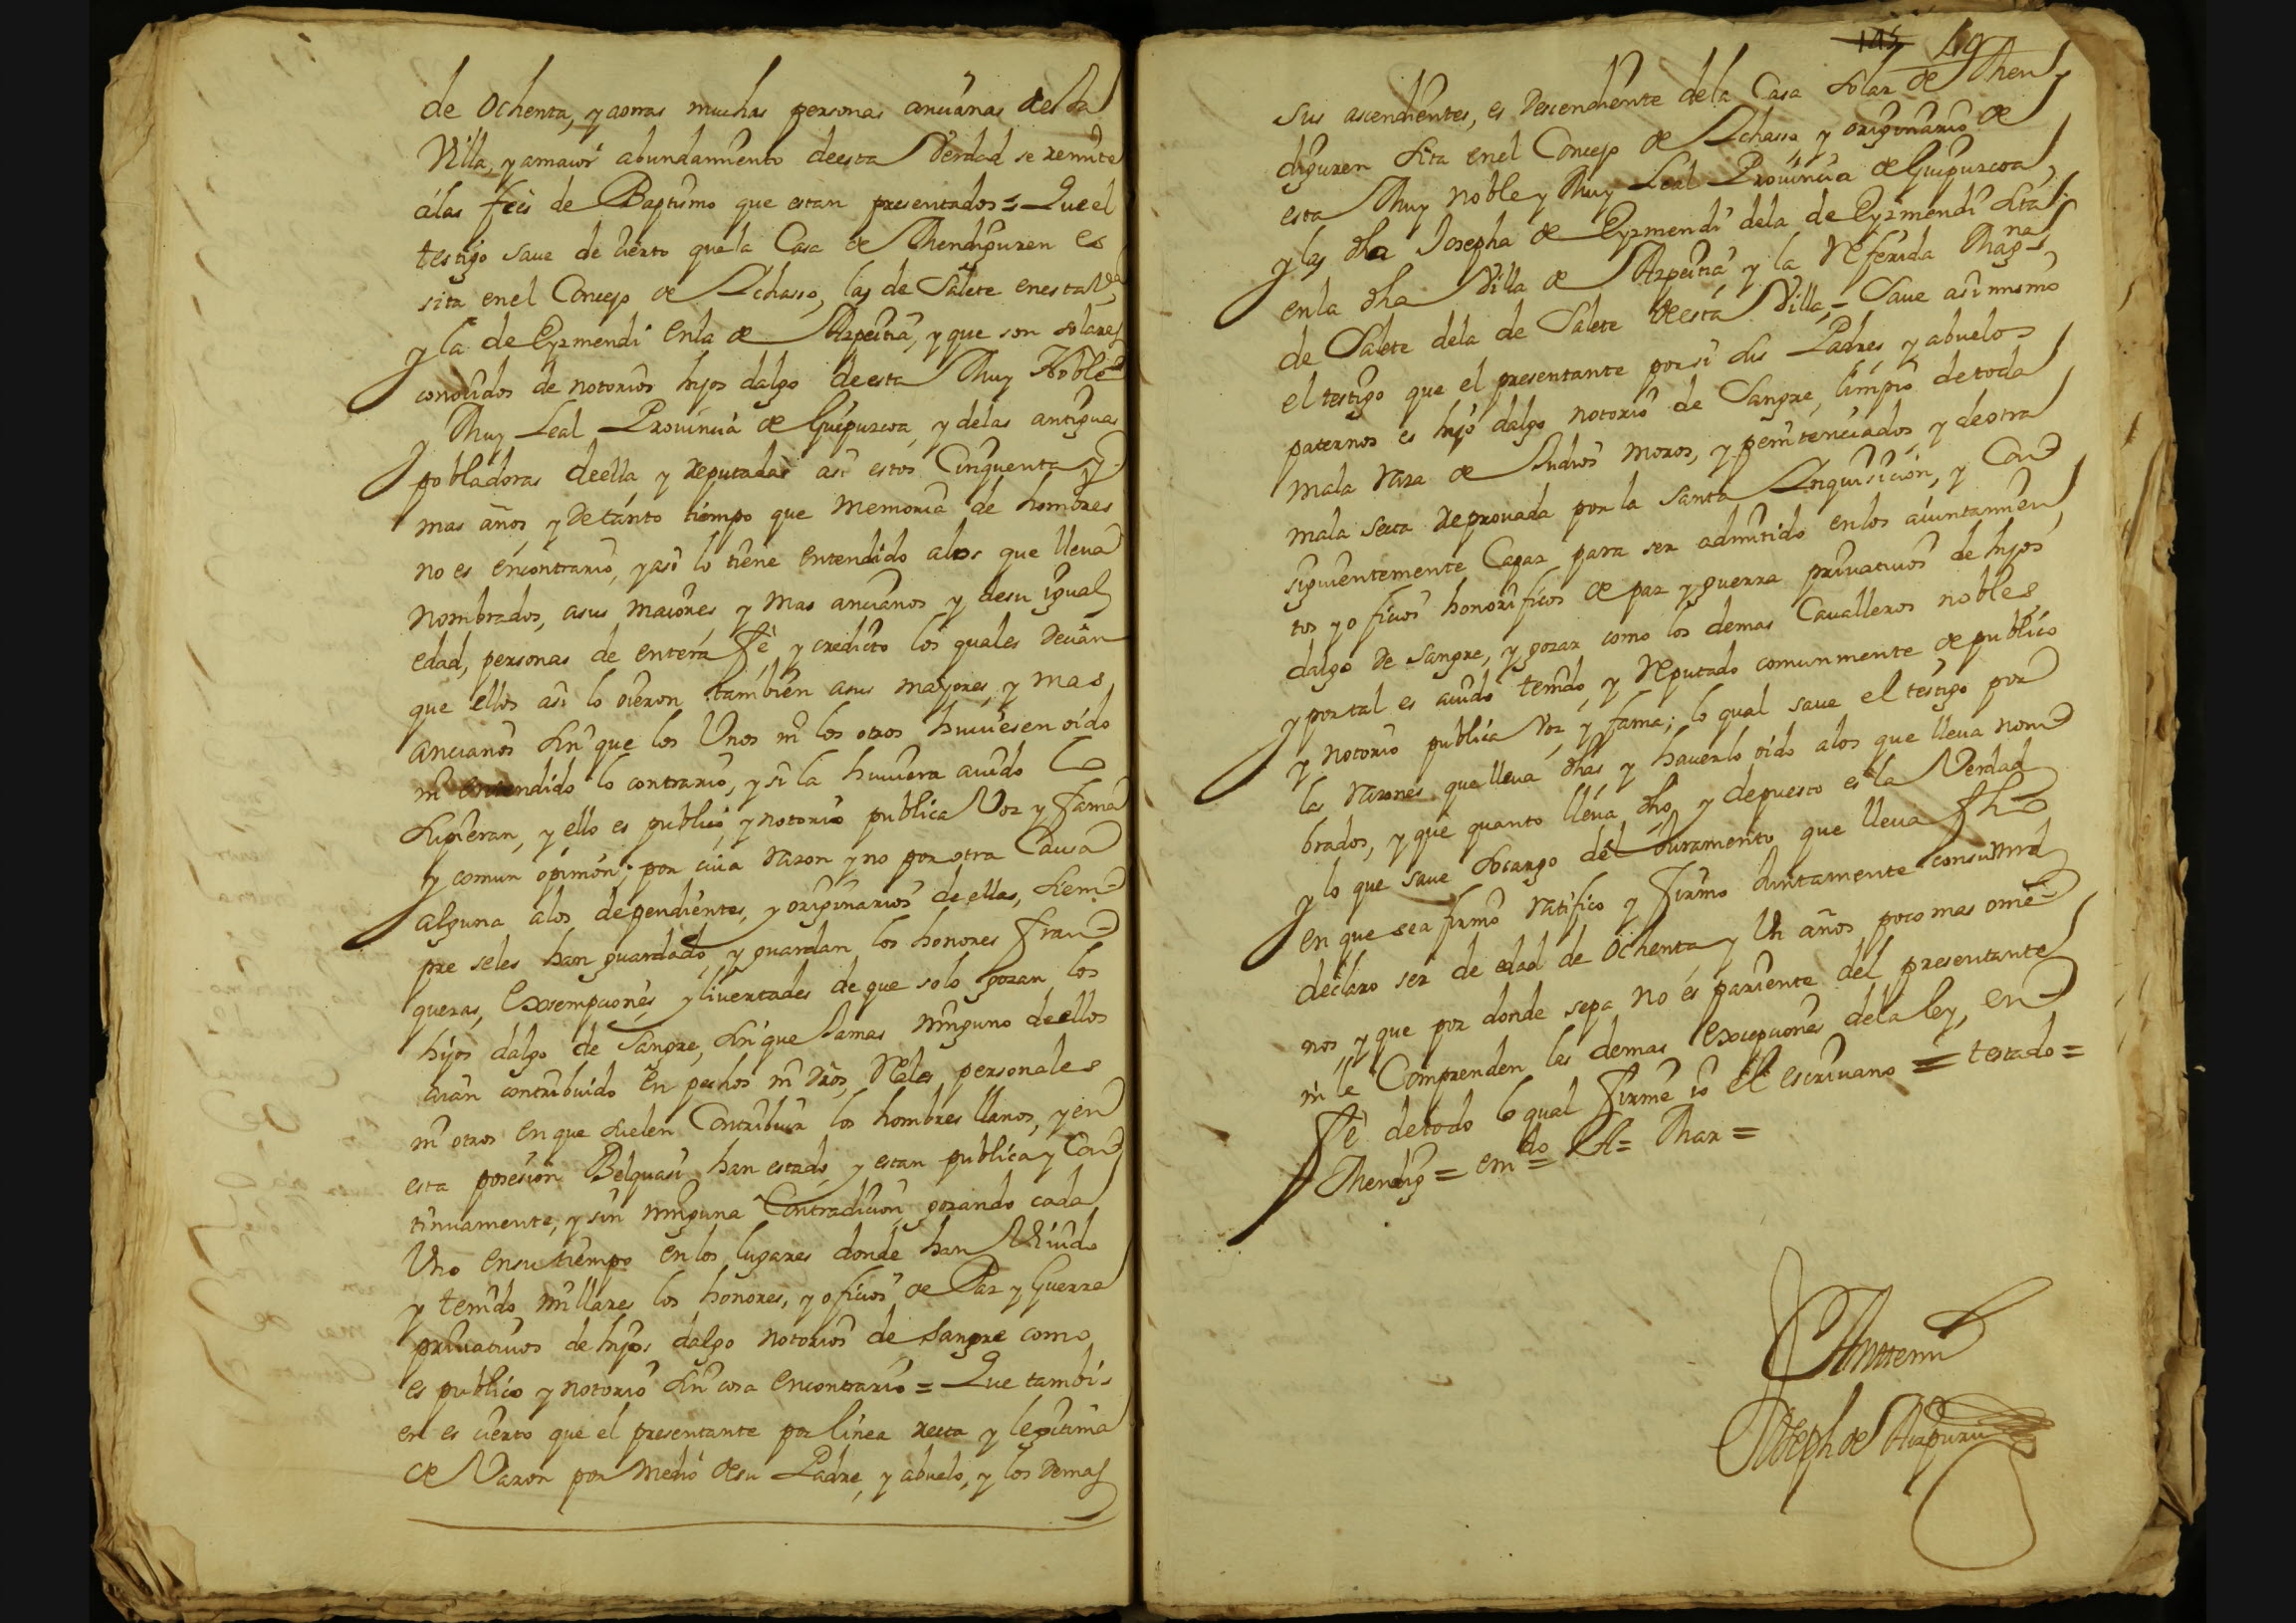 de Ochenta, y aotras muchas personas ancianas desta
Villa, y amaior abundamiento deesta Verdad se remite
álas feés de Baptismo que estan presentados = Que el
testigo saue de cierto que la Casa de Mendiguren es
sita enel Concejo de Ichasso, las de Salete enesta Va
y la de Eyzmendi enla de Azpeitia, y que son solares
conocidos de notorios hijos dalgo deesta Muy Noble
y Muy Leal Prouincia de Guipuzcoa, y delas antiguas
pobladoras deella y reputadas asi estos Cinquenta y
mas años, y de tanto tiempo que memoria de hombres
no es encontrario, y asi lo tiene entendido alos que lleua
nombrados, asus maiores y mas ancianos y desu igual
edad, personas de entera Fè y credicto los quales decian
que ellos asi lo oieron tambien asus mayores, y mas
ancianos sin que los Unos ni los otros huuiesen oído
ni entendido lo contrario, y si la huuiera auido lo
supieran, y ello es publico y notorio publica Voz y fama
y comun opinion; por cuia razon y no por otra Causa
alguna alos dependientes, y originarios de ellas, siem-
pre seles han guardado, y guardan los honores fran-
quezas, Exsempciones y liuertades de que solo gozan los
hijos dalgo de Sangre, sin que Jamas ninguno deellos
aian contribuido en pechos ni dros, Reales personales
ni otros en que suelen Contribuir los hombres llanos, y en
esta posesion Velquasi han estado y estan publica y Con-
tinuamente, y sin ninguna Contradicion gozando cada
Uno ensu tiempo en los lugares donde han Viuido
y tenido millares los honores, y oficios de Paz y Guerra
priuatiuos de hijos dalgo notorios de Sangre como
es publico y notorio sin cosa encontrario = Que tambi-
en es cierto que el presentante por línea recta y legitima
de Varon por medio desu Padre, y abuelo, y los demas
149
sus ascendientes, es Descendiente dela Casa solar de Men-
diguren sita enel Concejo de Ichasso y originario de
esta Muy noble y Muy Leal Prouincia de Guipuzcoa,
y las dha Josepha de Eyzmendi dela de Eyzmendi sita
enla dha Villa de Azpeitia y la Referida Magna
de Salete dela de Salete deesta Villa = Saue asi mismo
el testigo que el presentante por si sus Padres y abuelos
paternos es hijo dalgo notorio de Sangre, limpio detoda
mala raza de Judios moros, y penitenciados, y deotra
mala secta reprouada por la santa Inquisicion, y Con-
siguientemente Capaz para ser admitido enlos aiuntamien-
tos y oficios honorificos de paz y guerra priuatiuos de hijos
dalgo de Sangre, y gozar como los demas Caualleros nobles
y por tal es auido tenido, y reputado comunmente de publico
y notorio publica Voz y fama; lo qual saue el testigo por
las razones que lleua dhas y hauerlo oido alos que lleua nom-
brados, y que quanto lleua dho, y depuesto es la Verdad
y lo que saue socargo del Juramento que lleua fho
en que sea firmò ratifico y firmo Juntamente consu md
declaro ser de edad de Ochenta y Un años poco mas ome-
nos y que por donde sepa no es pariente del presentante
ni le Comprenden las demas Excepciones dela ley, en
Fè detodo lo qual firmè io el escriuano = testado =
Mendig = emdo = A = Maz =
Antemi
Joseph de Aizpuru